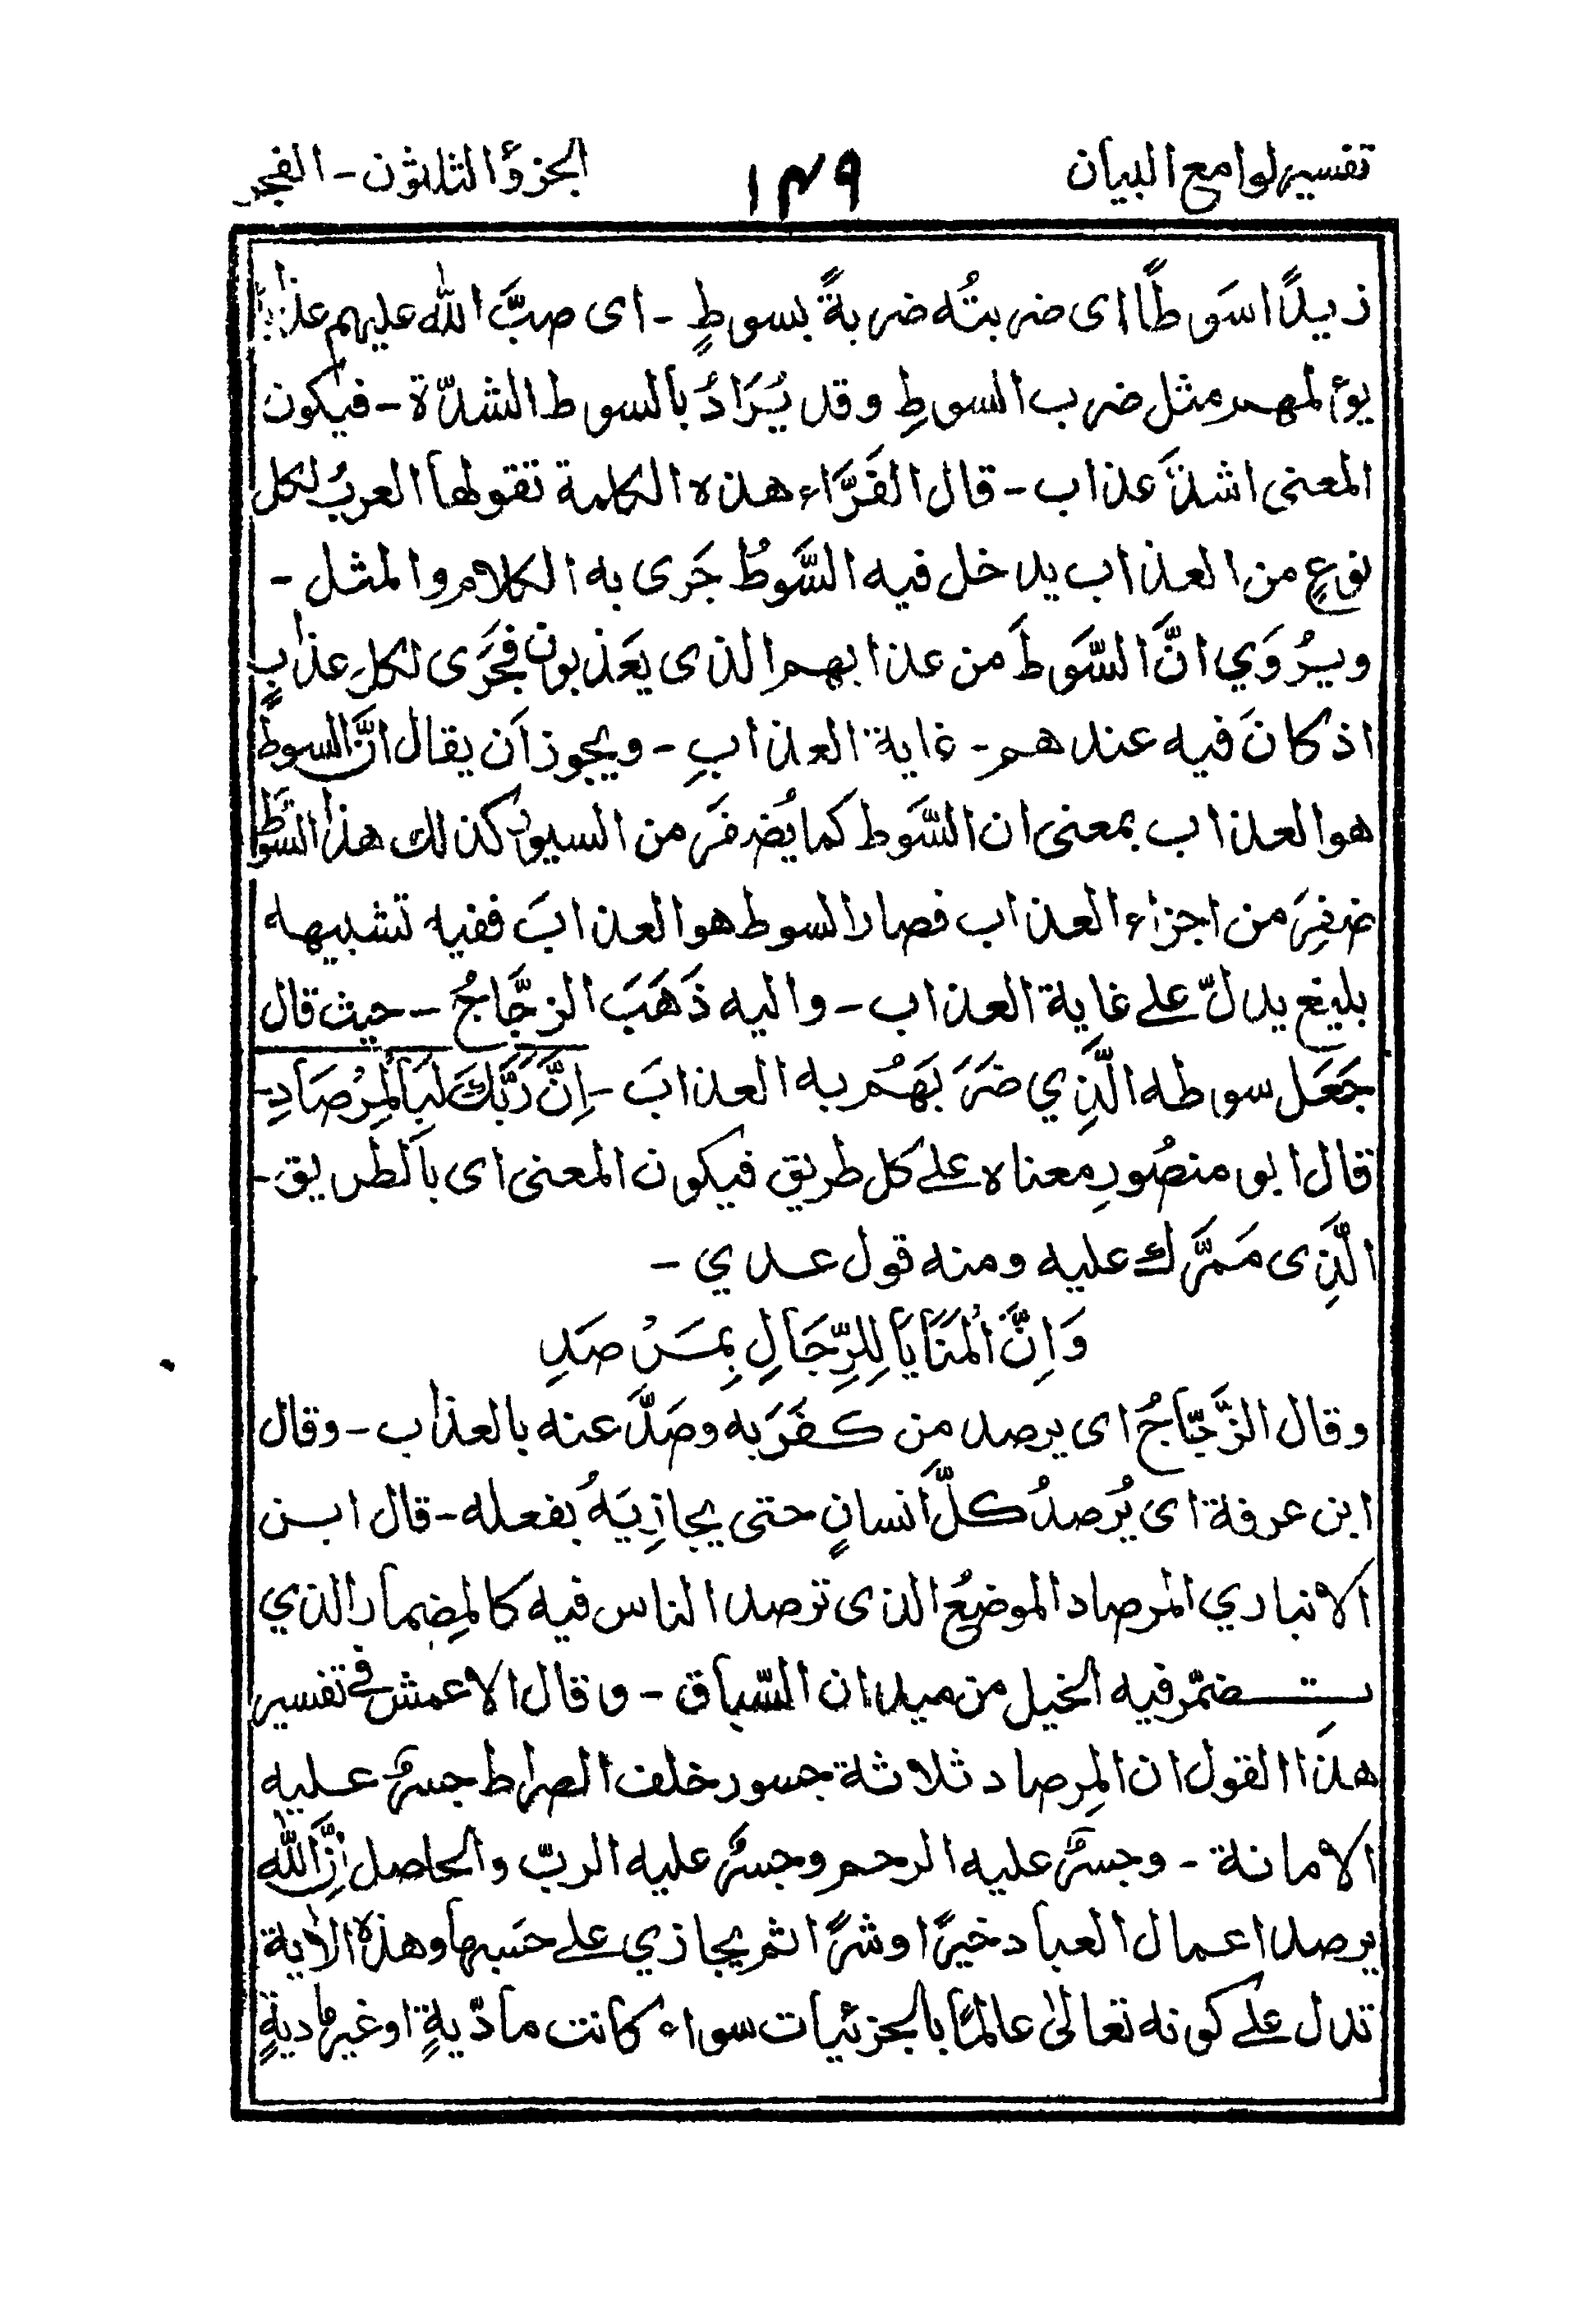 تفسير لوامع البيان ١٣٩ الجزؤ الثلاثون - الفجر
زيدًا سَوطًا اى ضربتُه ضربةً بسوطٍ - اى صبَّ الله عليهم عذابا
يوءلمهم مثل ضرب السوطِ وقد يُرَادُ بالسوط الشدّة - فيكون
المعنى اشدَّ عذاب - قال الفَرَّاء هذه الكلمة تقولها العربُ لكل
نوعٍ من العذاب يدخل فيه السَّوطُ جَرى به الكلام والمثل -
ويُروَي انَّ السَّوطَ من عذابهم الذى يعَذبون فجَرَى لكلِ عذابٍ
اذ كانَ فيه عندهم - غاية العذابِ - ويجوز اَن يقال انَّ السوط
هو العذاب بمعنى ان السَّوط كما يُضفَر من السيور كذلك هذا السَّوط
ضفِرَ من اجزاء العذاب فصار السوط هو العذابَ ففيه تشبيه
بليغ يدلّ على غاية العذاب - واليه ذَهَبَ الزجَّاجُ - حيث قال
جَعَل سوطه الَّذِي ضَرَبَهُم به العذابَ - اِنَّ رَبَّكَ لَبِالْمِرْصَادِ -
قال ابو منصُورِ معناه على كل طريق فيكون المعنى اى بالطريق -
الَّذِى مَمَرَّك عليه ومنه قول عدي -
وَاِنَّ الْمَنَايَا لِلرِّجَالِ بِمَرْصَدِ
وقال الزَّجّاجُ اى يرصد من كفَرَ به وصَدَّ عنه بالعذاب - وقال
ابن عرفة اى يُرصدُ كلَّ اَنسانٍ حتى يجازِيَهُ بفعله - قال ابن
الانباري المرصاد الموضعُ الذى ترصد الناس فيه كالمِضمار الذي
تضمّر فيه الخيل من ميدان السّباق - وقال الاعمش فى تفسير
هذا القول ان المِرصاد ثلاثة جسور خلف الصراط جسرٌ عليه
الامانة - وجسرٌ عليه الرحم وجسرٌ عليه الربّ والحاصل اَنَّ الله
يرصد اعمال العباد خيرًا وشرًا ثم يجازي على حَسبها وهذه الاٰية
تدل على كونه تعالىٰ عالمًا بالجزئيات سواء كانت مادّيةٍ او غير ماديةٍ